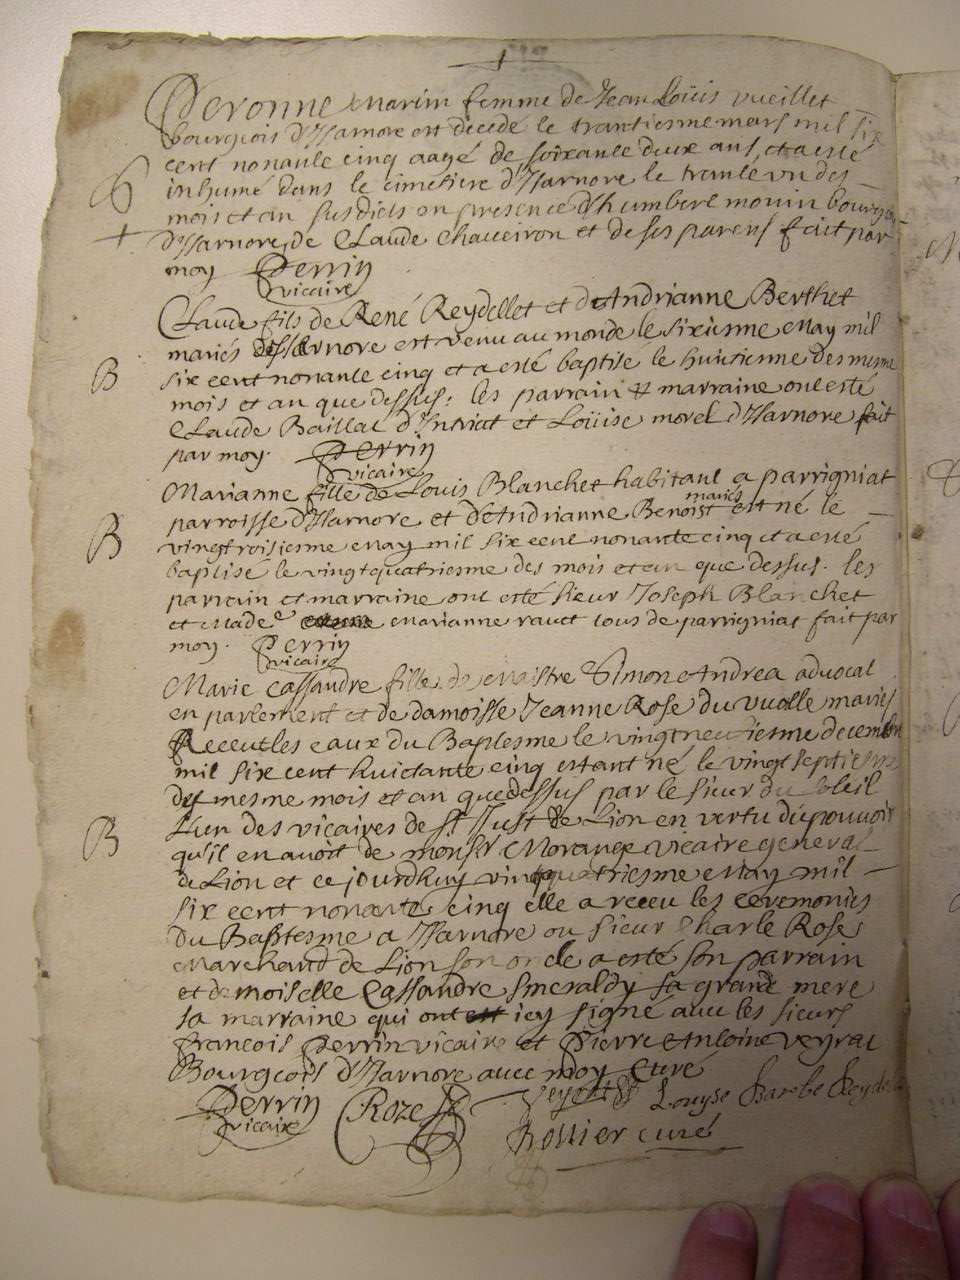 Peronne Marin femme de Jean Loüis vueillet
bourgeois d'Isarnore est decedé le trantiesme mars mil six
cent nonante cinq aagé de soixante deux ans, et a esté
S inhumé dans le cimetiere d'Isarnore le trante vn des
mois et an susdicts en presence d'humbert monin bourgeois
+ d'Isarnore, de Claude Chaveiron et de ses parens fait par
moy Perrin
vicaire
Claude fils de René Reydellet et d'Andrianne Berthet
mariés d'Isarnore est venu au monde le sixiesme May mil
B six cent nonante cinq et a esté baptise le huitiesme des mesme
mois et an que dessus. les parrain et marraine ont esté
Claude Baillat d'Intriat et Loüise morel d'Isarnore fait
par moy. Perrin
vicaire
Marianne fille de Louis Blanchet habitant a parrigniat
parroisse d'Isarnore et d'Andrianne Benoist mariés est né le
B vingtroisiesme May mil six cent nonante cinq et a esté
baptisé le vingtquatriesme des mois et an que dessus. les
parrain et marraine ont esté sieur Joseph Blanchet
et Made^e Marianne ravet tous de parrigniat fait par
moy. Perrin
vicaire
Marie Cassandre fille de Maistre Simon Andrea advocat
en parlement et de damoisse Jeanne Rose du vuolle mariés
Receut les eaux du Baptesme le vingtneufiesme decembre
mil six cent huictante cinq estant né le vingt septiesme
du mesme mois et an que dessus par le sieur du soleil
B l'un des vicaires de st Just de Lion en vertu du pouvoir
qu'il en avoit de monsr Morange vicaire general
de Lion et ce jourdhuy vingtquatriesme May mil
six cent nonante cinq elle a receu les ceremonies
du Baptesme a Isarnore ou sieur Charle Rose
Marchand de Lion son oncle a esté son parrain
et demoiselle Cassandre Smeraldy sa grand mere
sa marraine qui ont icy signé avec les sieurs
francois Perrin vicaire et Pierre Antoine veyrat
Bourgeois d'Isarnore avec moy Curé
Perrin Roze Louyse Barbe Reydellet
vicaire Bollier curé